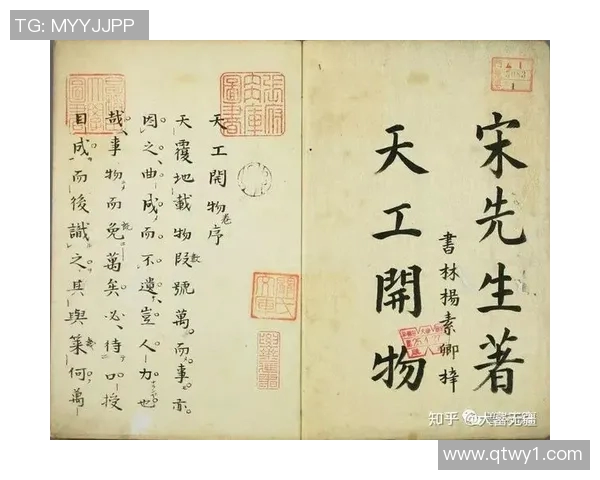 TG: MYYJJPP
宋先生著
書林楊素卿梓
天工開物
天工開物卷序
天覆地載物數號萬而事亦
因之曲成而不遺豈人力也
哉事物而既萬矣必待口授
目成而後識之其與幾何萬
知乎 @大富无疆
www.qtwy1.com